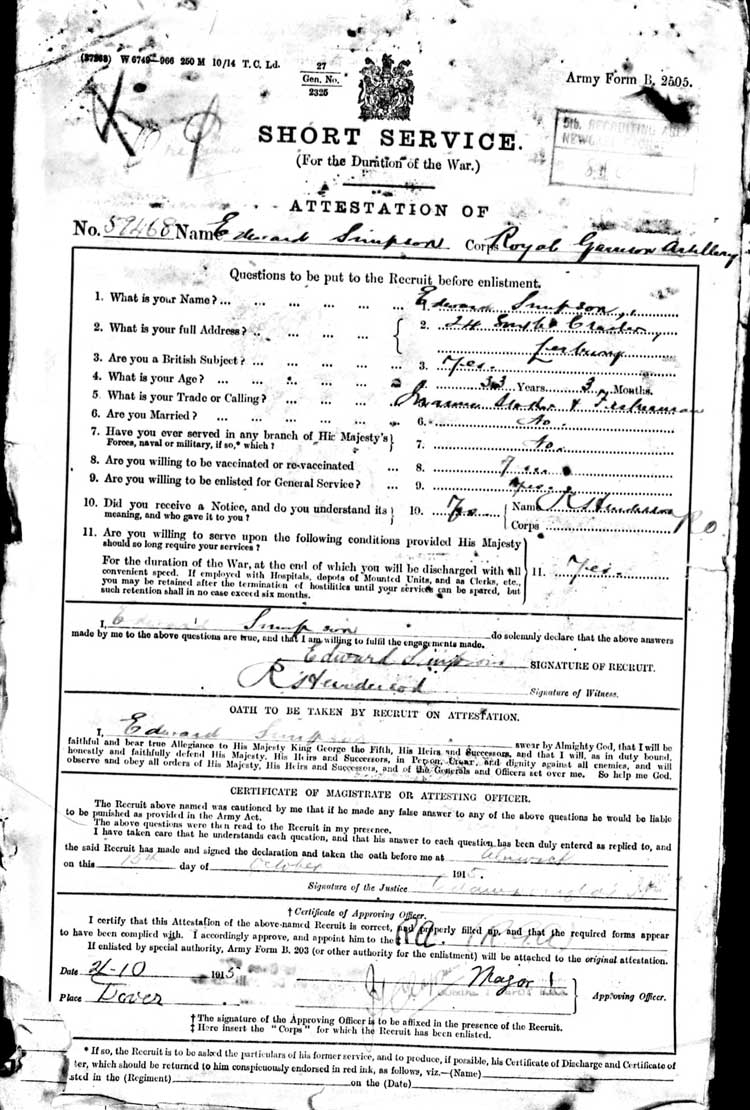 (37263) W 6749—966 250 M 10/14 T. C. Ld.
27
Gen. No.
2325
Army Form B. 2505.
5th. RECRUITING
NEWCASTLE
SHORT SERVICE.
(For the Duration of the War.)
ATTESTATION OF
No. 59468 Name Edward Simpson Corps Royal Garrison Artillery
Questions to be put to the Recruit before enlistment.
1. What is your Name? ... 1. Edward Simpson
2. What is your full Address? ... 2. 24
Lesbury
3. Are you a British Subject? ... 3. Yes.
4. What is your Age? ... 33 Years 3 Months.
5. What is your Trade or Calling? ... & Fisherman
6. Are you Married? ... 6. No.
7. Have you ever served in any branch of His Majesty's
Forces, naval or military, if so,* which? 7. No.
8. Are you willing to be vaccinated or re-vaccinated ... 8. Yes
9. Are you willing to be enlisted for General Service? ... 9. Yes.
10. Did you receive a Notice, and do you understand its
meaning, and who gave it to you? 10. Yes Name R S Henderson
Corps RO
11. Are you willing to serve upon the following conditions provided His Majesty
should so long require your services?
For the duration of the War, at the end of which you will be discharged with all
convenient speed. If employed with Hospitals, depots of Mounted Units, and as Clerks, etc.,
you may be retained after the termination of hostilities until your services can be spared, but
such retention shall in no case exceed six months. 11. Yes.
I, Edward Simpson do solemnly declare that the above answers
made by me to the above questions are true, and that I am willing to fulfil the engagements made.
Edward Simpson SIGNATURE OF RECRUIT.
R S Henderson Signature of Witness.
OATH TO BE TAKEN BY RECRUIT ON ATTESTATION.
I, Edward Simpson swear by Almighty God, that I will be
faithful and bear true Allegiance to His Majesty King George the Fifth, His Heirs and Successors, and that I will, as in duty bound,
honestly and faithfully defend His Majesty, His Heirs and Successors, in Person, Crown, and dignity against all enemies, and will
observe and obey all orders of His Majesty, His Heirs and Successors, and of the Generals and Officers set over me. So help me God.
CERTIFICATE OF MAGISTRATE OR ATTESTING OFFICER.
The Recruit above named was cautioned by me that if he made any false answer to any of the above questions he would be liable
to be punished as provided in the Army Act.
The above questions were then read to the Recruit in my presence.
I have taken care that he understands each question, and that his answer to each question has been duly entered as replied to, and
the said Recruit has made and signed the declaration and taken the oath before me at Alnwick
on this 15th day of October 1915.
Signature of the Justice
† Certificate of Approving Officer.
I certify that this Attestation of the above-named Recruit is correct, and properly filled up, and that the required forms appear
to have been complied with. I accordingly approve, and appoint him to the‡ RA.
If enlisted by special authority, Army Form B. 203 (or other authority for the enlistment) will be attached to the original attestation.
Date 21-10 1915 Major
Place Dover Approving Officer.
† The signature of the Approving Officer is to be affixed in the presence of the Recruit.
‡ Here insert the "Corps" for which the Recruit has been enlisted.
* If so, the Recruit is to be asked the particulars of his former service, and to produce, if possible, his Certificate of Discharge and Certificate of
ter, which should be returned to him conspicuously endorsed in red ink, as follows, viz.—(Name)
sted in the (Regiment) on the (Date)